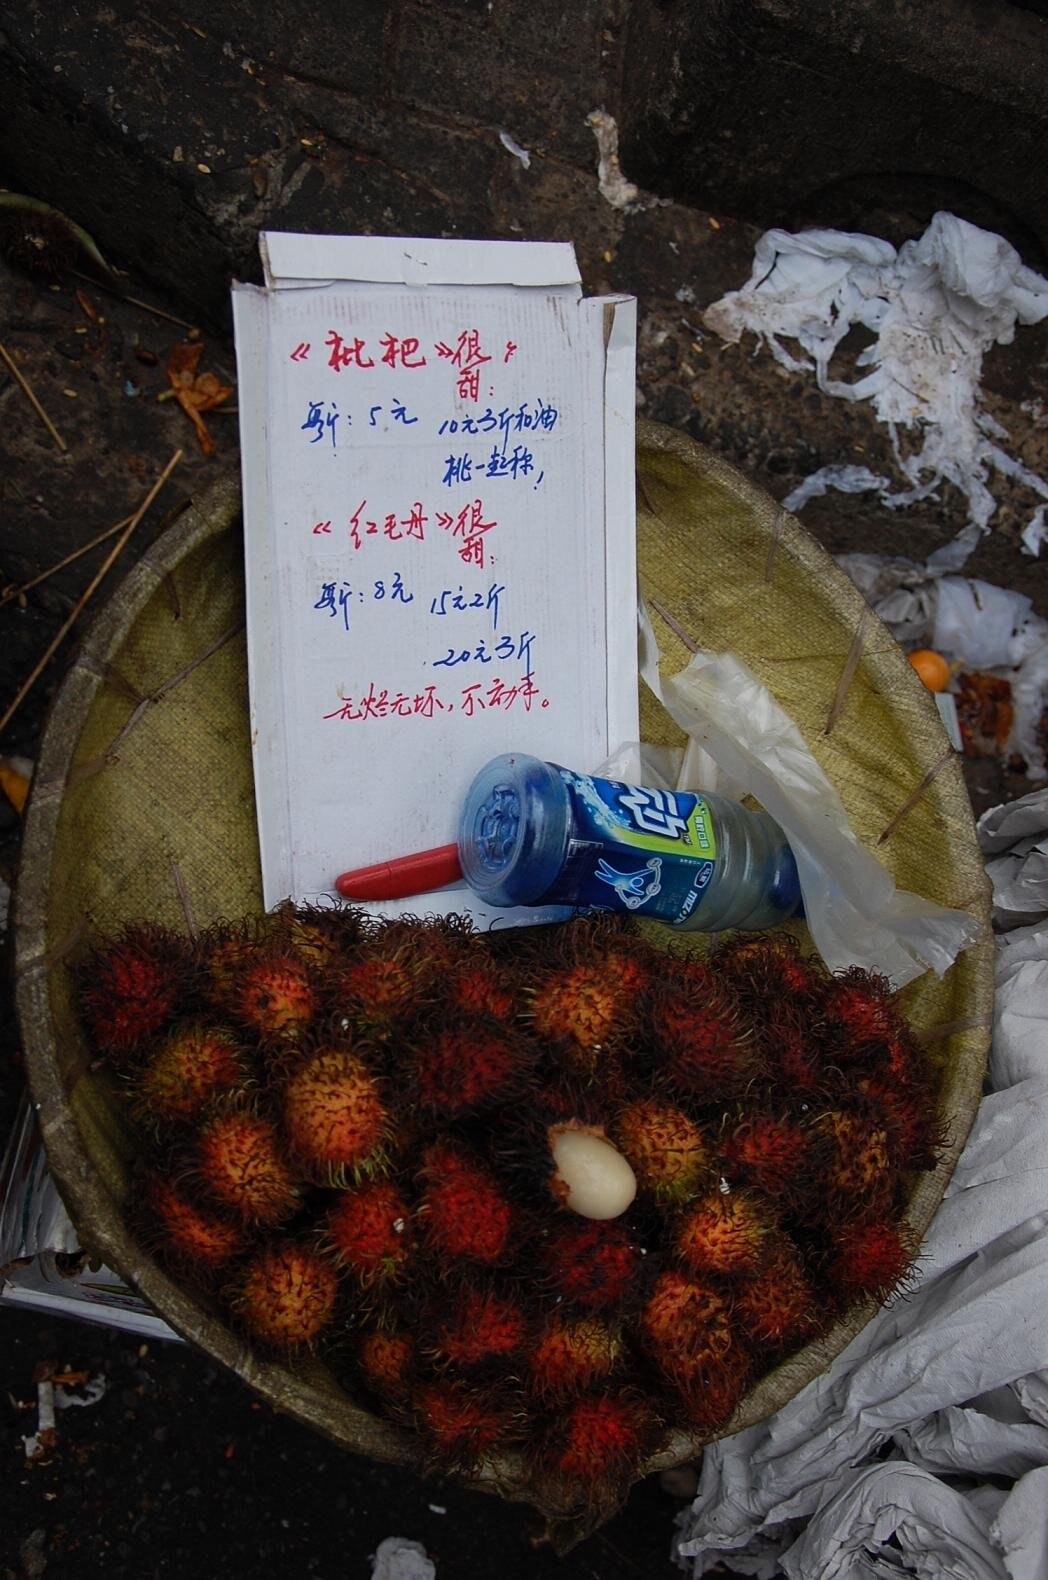 《枇杷》很
甜：
每斤：5元 10元3斤和油
桃一起称！
《红毛丹》很
甜：
每斤：8元 15元2斤
20元3斤
无烂无坏，不动手。
动
miz